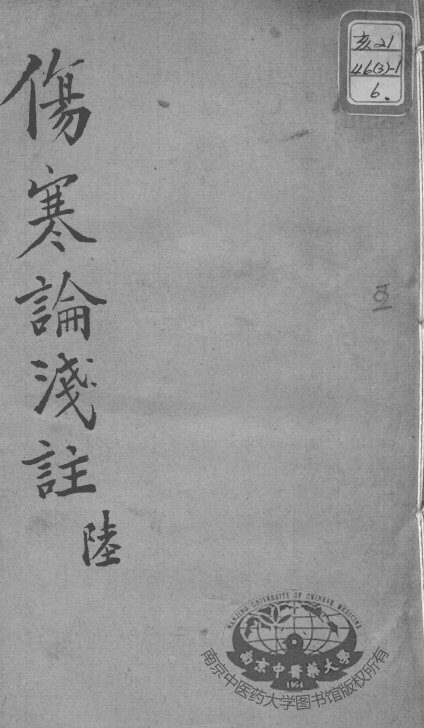 傷寒論淺註
陸
亥21
46(3)-1
6.
NANJING UNIVERSITY OF CHINESE MEDICINE
南京中醫藥大學
1954
南京中医药大学图书馆版权所有